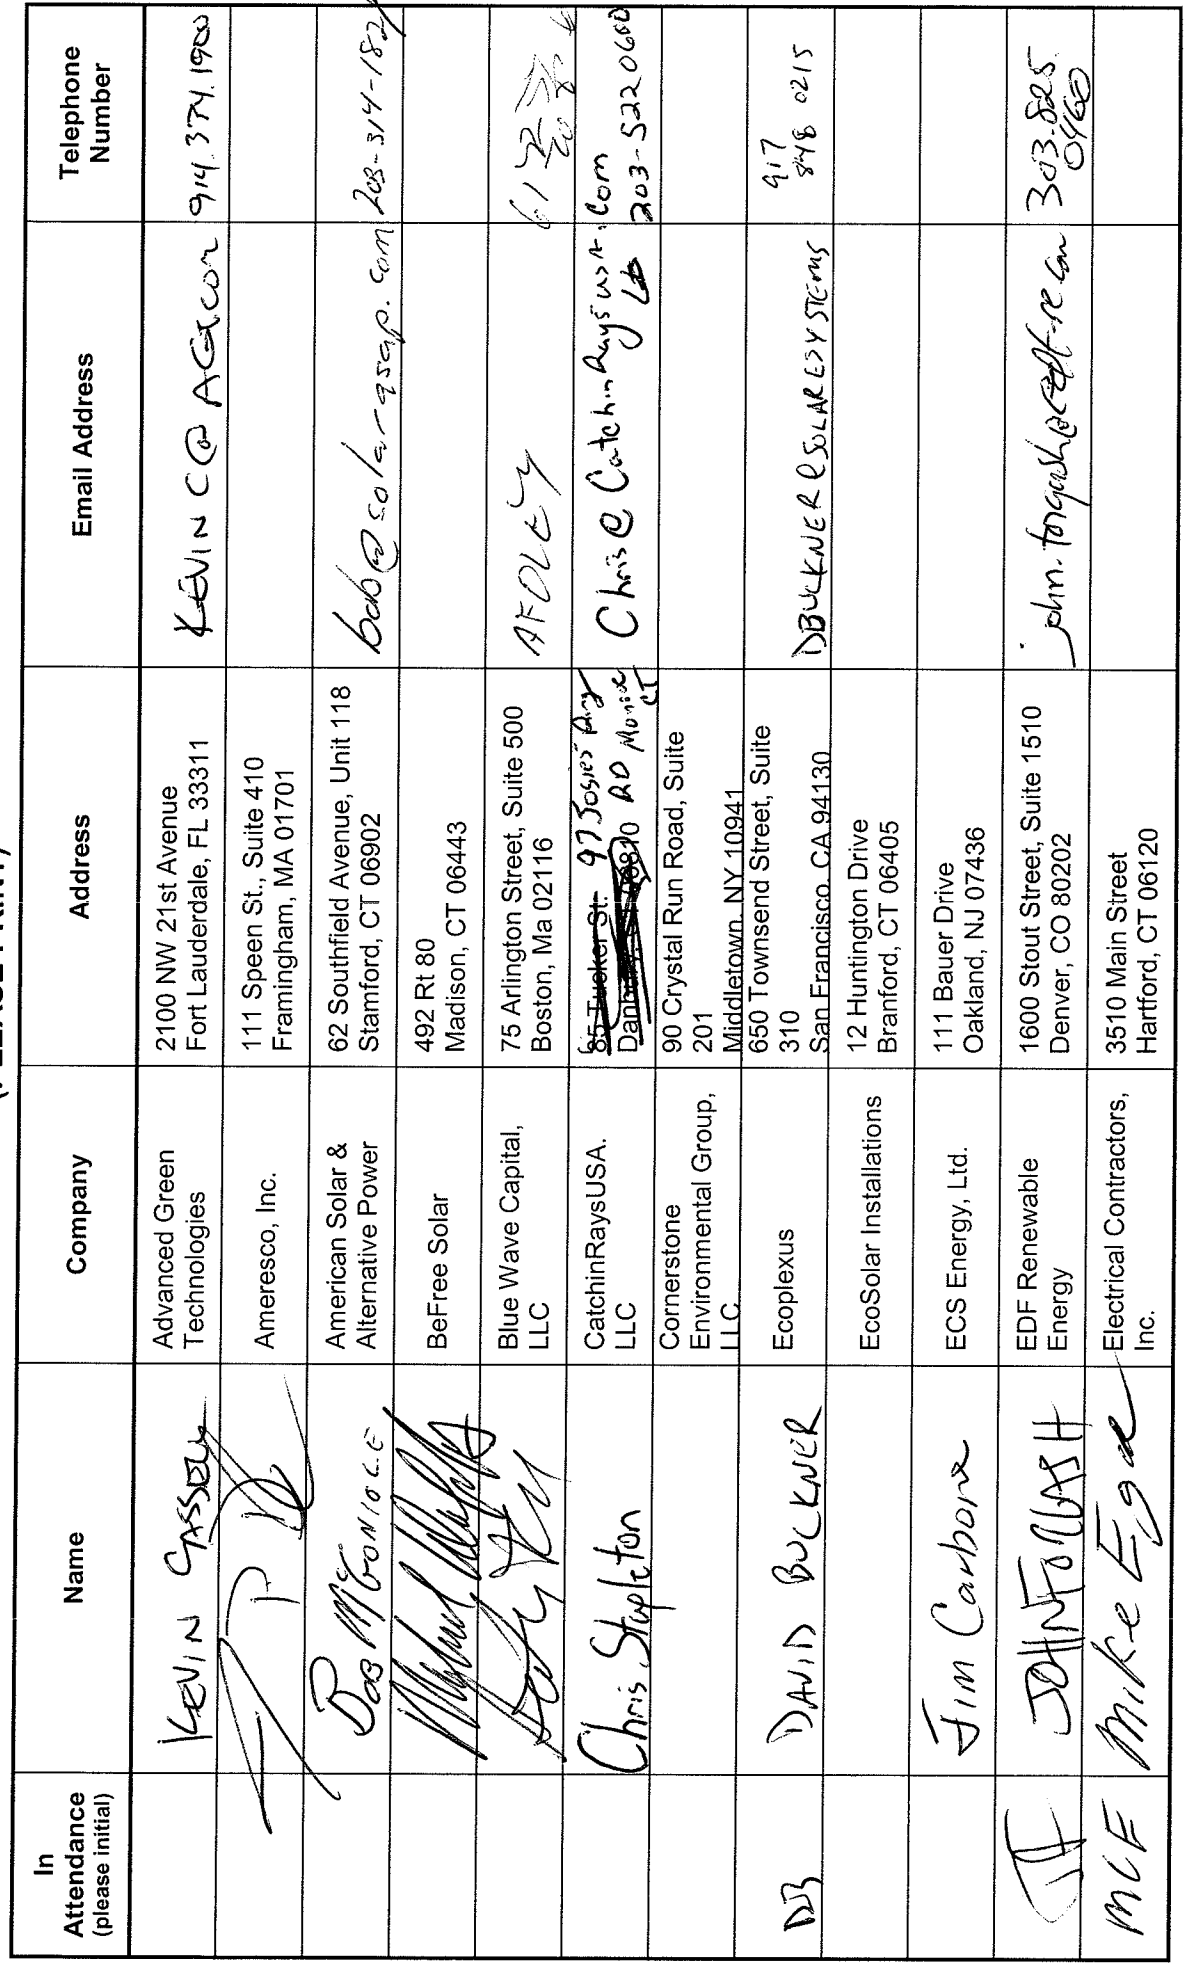 In
Attendance
(please initial)
Name
Company
Address
Email Address
Telephone
Number
KEVIN CASSIDY
Advanced Green
Technologies
2100 NW 21st Avenue
Fort Lauderdale, FL 33311
KEVINC@AGT.com
914.374.1900
Ameresco, Inc.
111 Speen St., Suite 410
Framingham, MA 01701
BOB McGONIGLE
American Solar &
Alternative Power
62 Southfield Avenue, Unit 118
Stamford, CT 06902
bob@solarasap.com
203-314-182
BeFree Solar
492 Rt 80
Madison, CT 06443
Blue Wave Capital,
LLC
75 Arlington Street, Suite 500
Boston, Ma 02116
AFOLEY
Chris Stapleton
CatchinRaysUSA.
LLC
85 Tucker St. 97 Josies Ring
RD Monroe
CT
Chris@CatchinRaysUSA.Com
203-522 0600
Cornerstone
Environmental Group,
LLC
90 Crystal Run Road, Suite
201
Middletown, NY 10941
DB
DAVID BUCKNER
Ecoplexus
650 Townsend Street, Suite
310
San Francisco, CA 94130
DBUCKNER@SOLARESYSTEMS
917
848 0215
EcoSolar Installations
12 Huntington Drive
Branford, CT 06405
Jim Carbone
ECS Energy, Ltd.
111 Bauer Drive
Oakland, NJ 07436
JF
JOHN FORGASH
EDF Renewable
Energy
1600 Stout Street, Suite 1510
Denver, CO 80202
john.forgash@edf-re.com
303.825
0460
MCE
Mike Egan
Electrical Contractors,
Inc.
3510 Main Street
Hartford, CT 06120